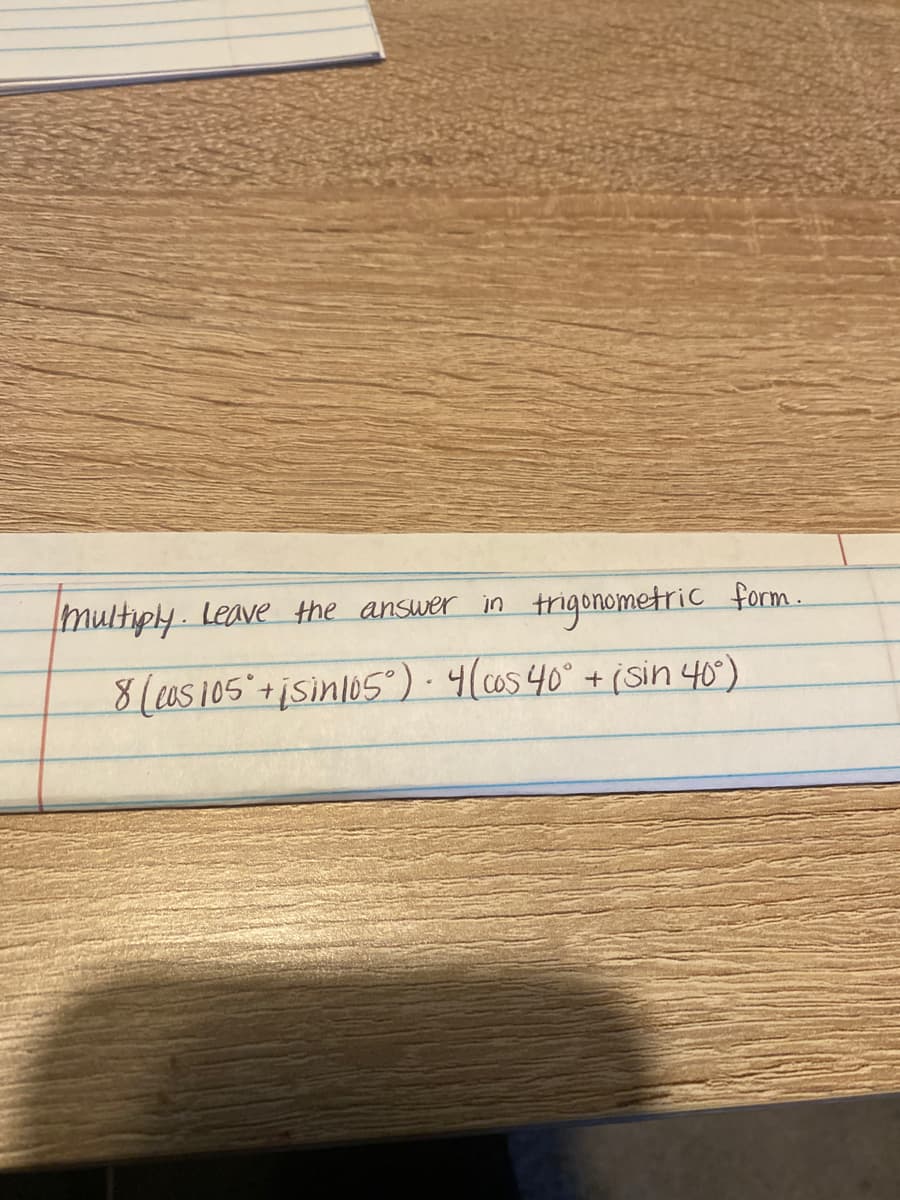 multiply. Leave the answer in trigonometric form.
8(cos 105° + i sin 105°) · 4(cos 40° + i sin 40°)